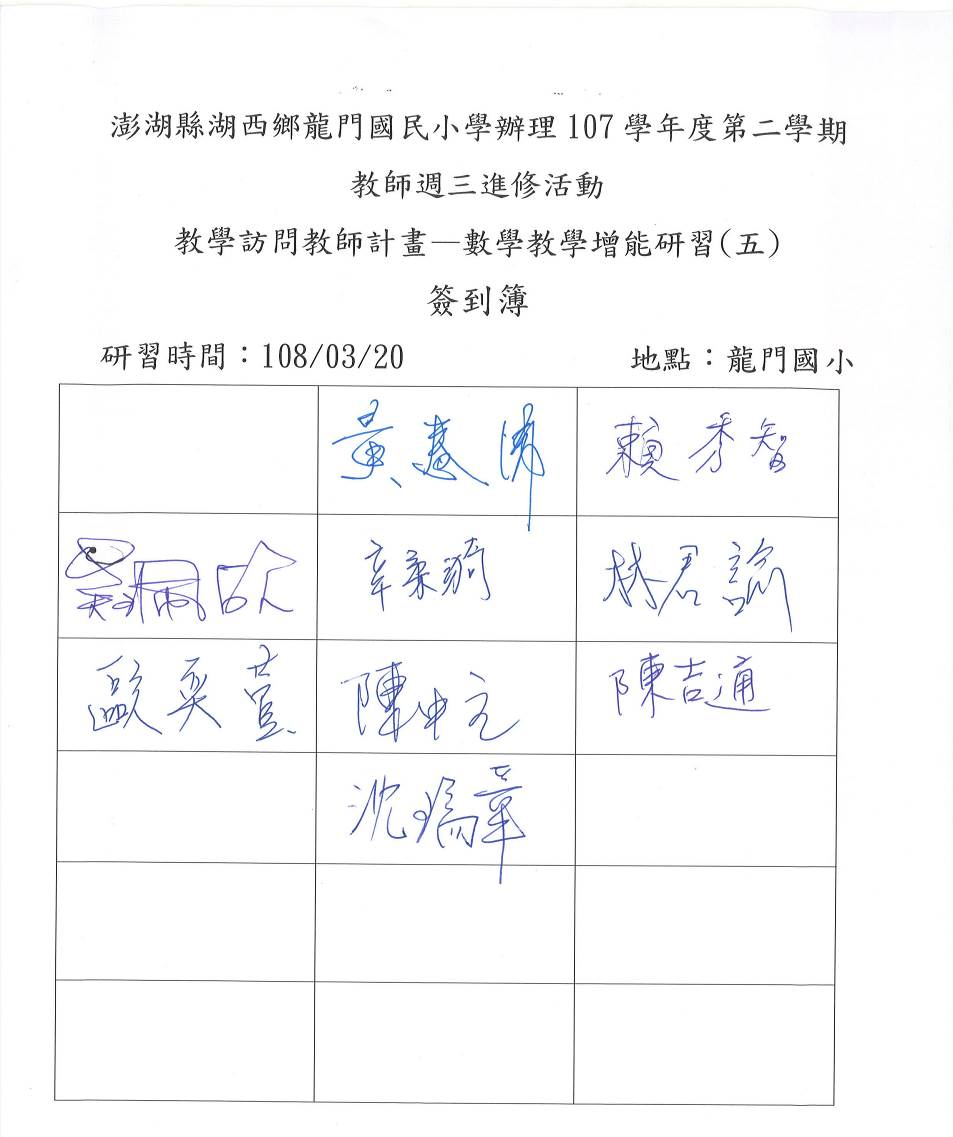 澎湖縣湖西鄉龍門國民小學辦理 107 學年度第二學期
教師週三進修活動
教學訪問教師計畫—數學教學增能研習(五)
簽到簿
研習時間：108/03/20 地點：龍門國小
黃慧 賴秀智
辛柔騎 林君諭
歐奕 陳中元 陳吉通
沈瑞華